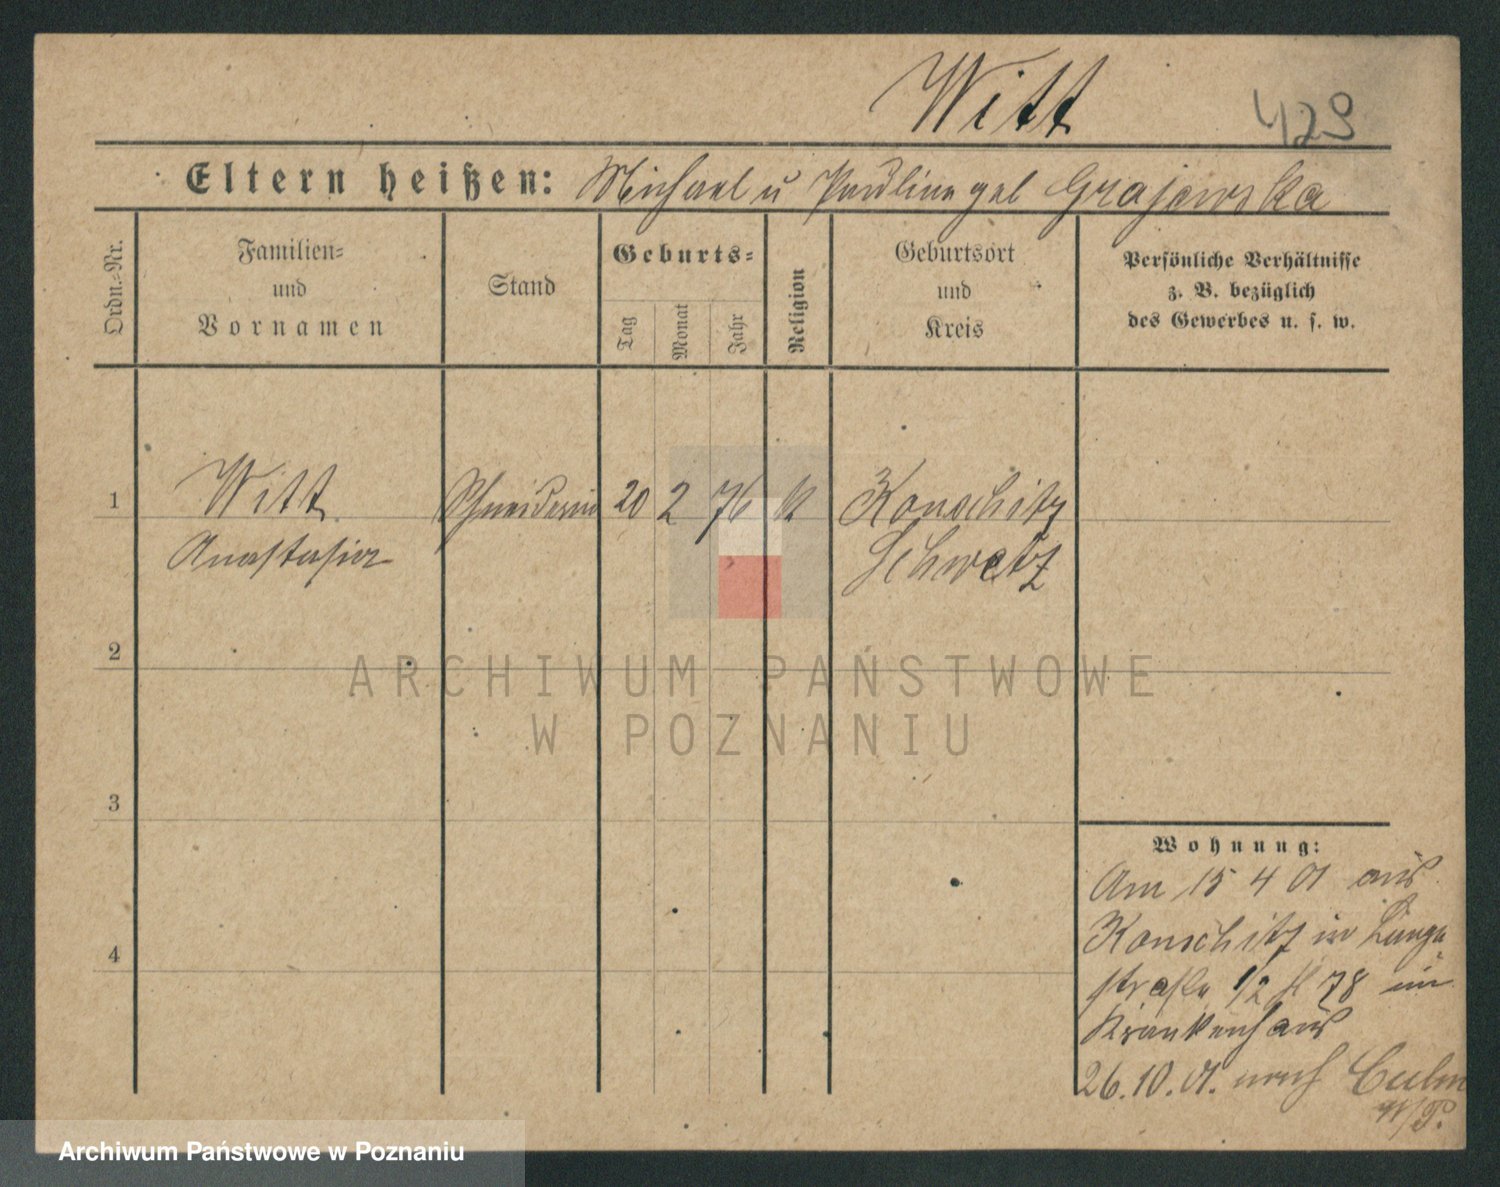 Witt
429
Eltern heißen: Michael u Pauline geb Grajewska
Ordn.-Nr.
Familien-
und
Vornamen
Stand
Geburts-
Tag
Monat
Jahr
Religion
Geburtsort
und
Kreis
Persönliche Verhältnisse
z. B. bezüglich
des Gewerbes u. s. w.
1
Witt Schneiderin 20 2 76 K Konschitz
Anastasia Schwetz
2
3
4
Wohnung:
Am 15 4 01 aus
Konschitz in Lange
straße 1/2 78 im
Krankenhaus
26.10.01. nach Culm
W/P.
ARCHIWUM PAŃSTWOWE
W POZNANIU
Archiwum Państwowe w Poznaniu